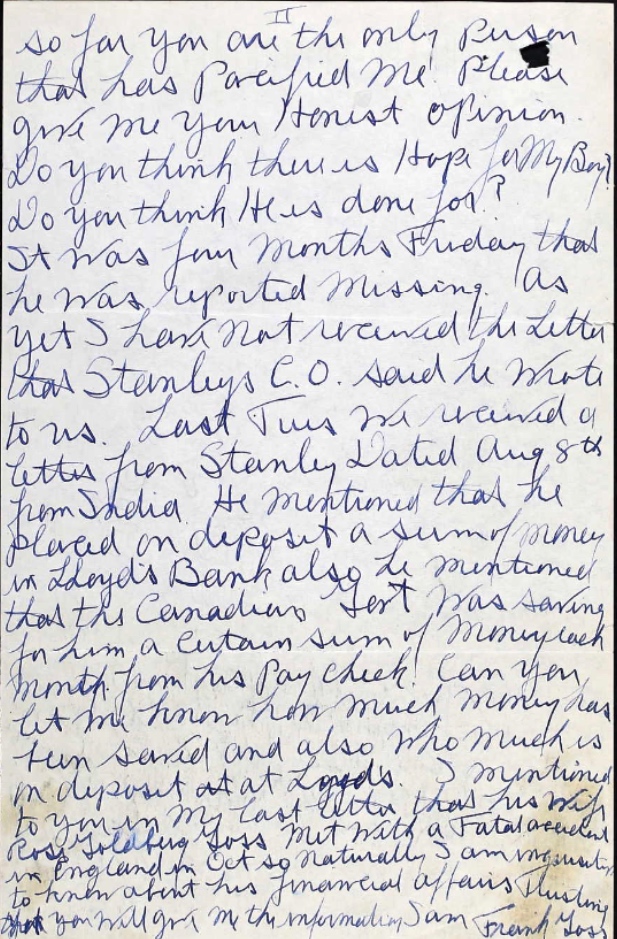 II
so far you are the only Person
that has Pacified Me. Please
give me your Honest opinion.
Do you think there is Hope for My Boy?
Do you think He is done for?
It was four Months Friday that
he was reported Missing. As
yet I have Not received the Letter
that Stanleys C.O. said he Wrote
to us. Last Tues We received a
letter from Stanley Dated Aug 8th
from India. He Mentioned that he
placed on deposit a sum of Money
in Lloyd's Bank also he Mentioned
that the Canadian Govt Was saving
for him a certain sum of Money each
Month from his Pay check. Can you
let me know how much Money has
been saved and also who Much is
on deposit at at Loyd's. I mentioned
to you in My last letter that his Wife
Rose Goldberg Goss Met With a Fatal accident
in England in Oct so Naturally I am inquisitive
to know about his financial affairs Trusting
that you will give Me the information I am Frank Goss